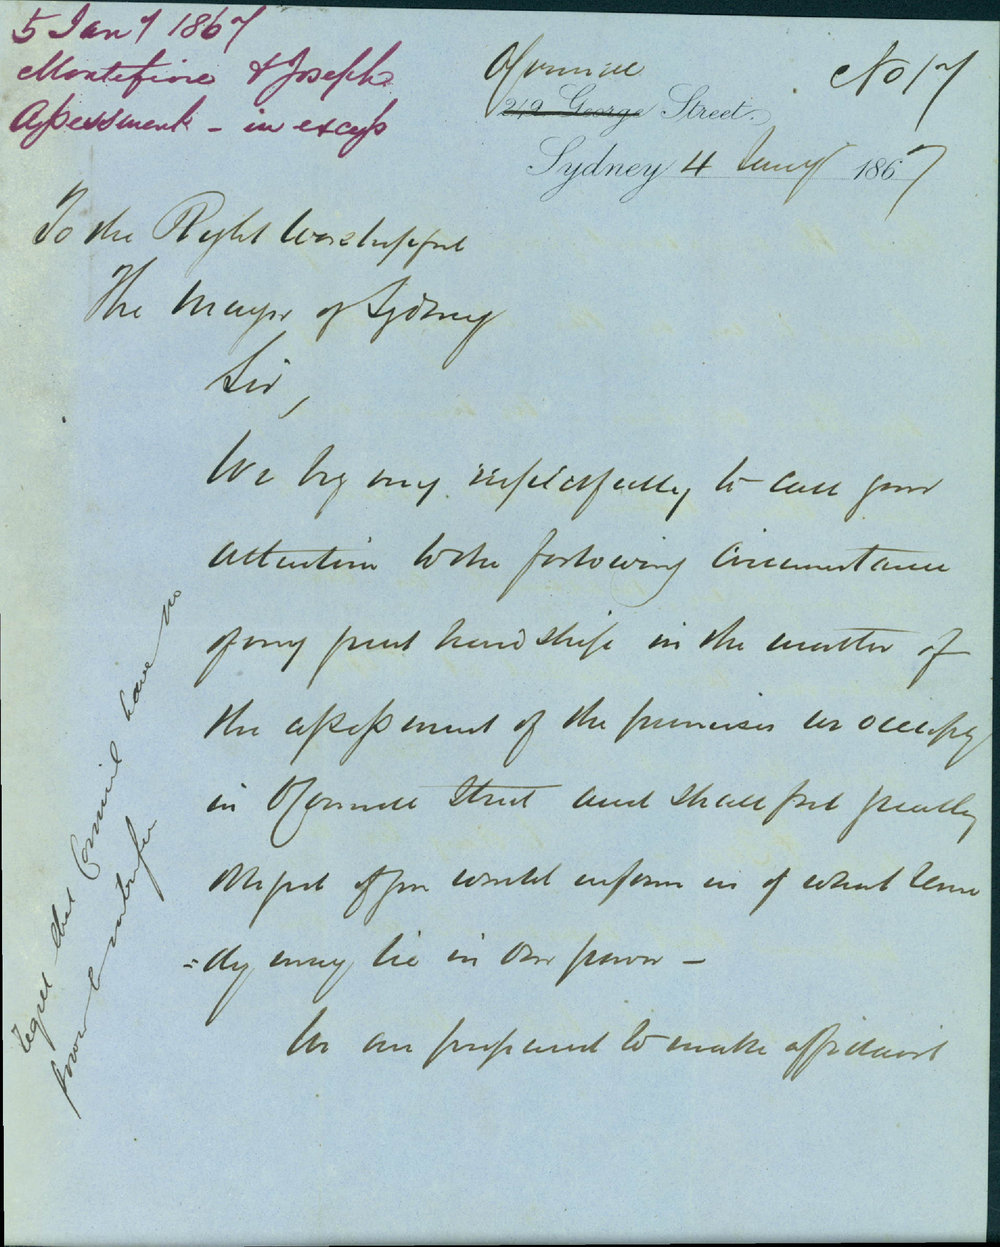 5 Jany 1867
Montefiore & Joseph
Assessment - in excess
No 17
O'Connell
219 George Street.
Sydney 4 Jany 1867
To the Right Worshipful
The Mayor of Sydney
Sir,
We beg very respectfully to call your
attention to the following circumstance
of very great hardship in the matter of
the assessment of the premises we occupy
in O'Connell Street and shall feel greatly
obliged if you would inform us of what reme
=dy may lie in our power -
We are prepared to make affidavit
regret that Council have no
power to interfere